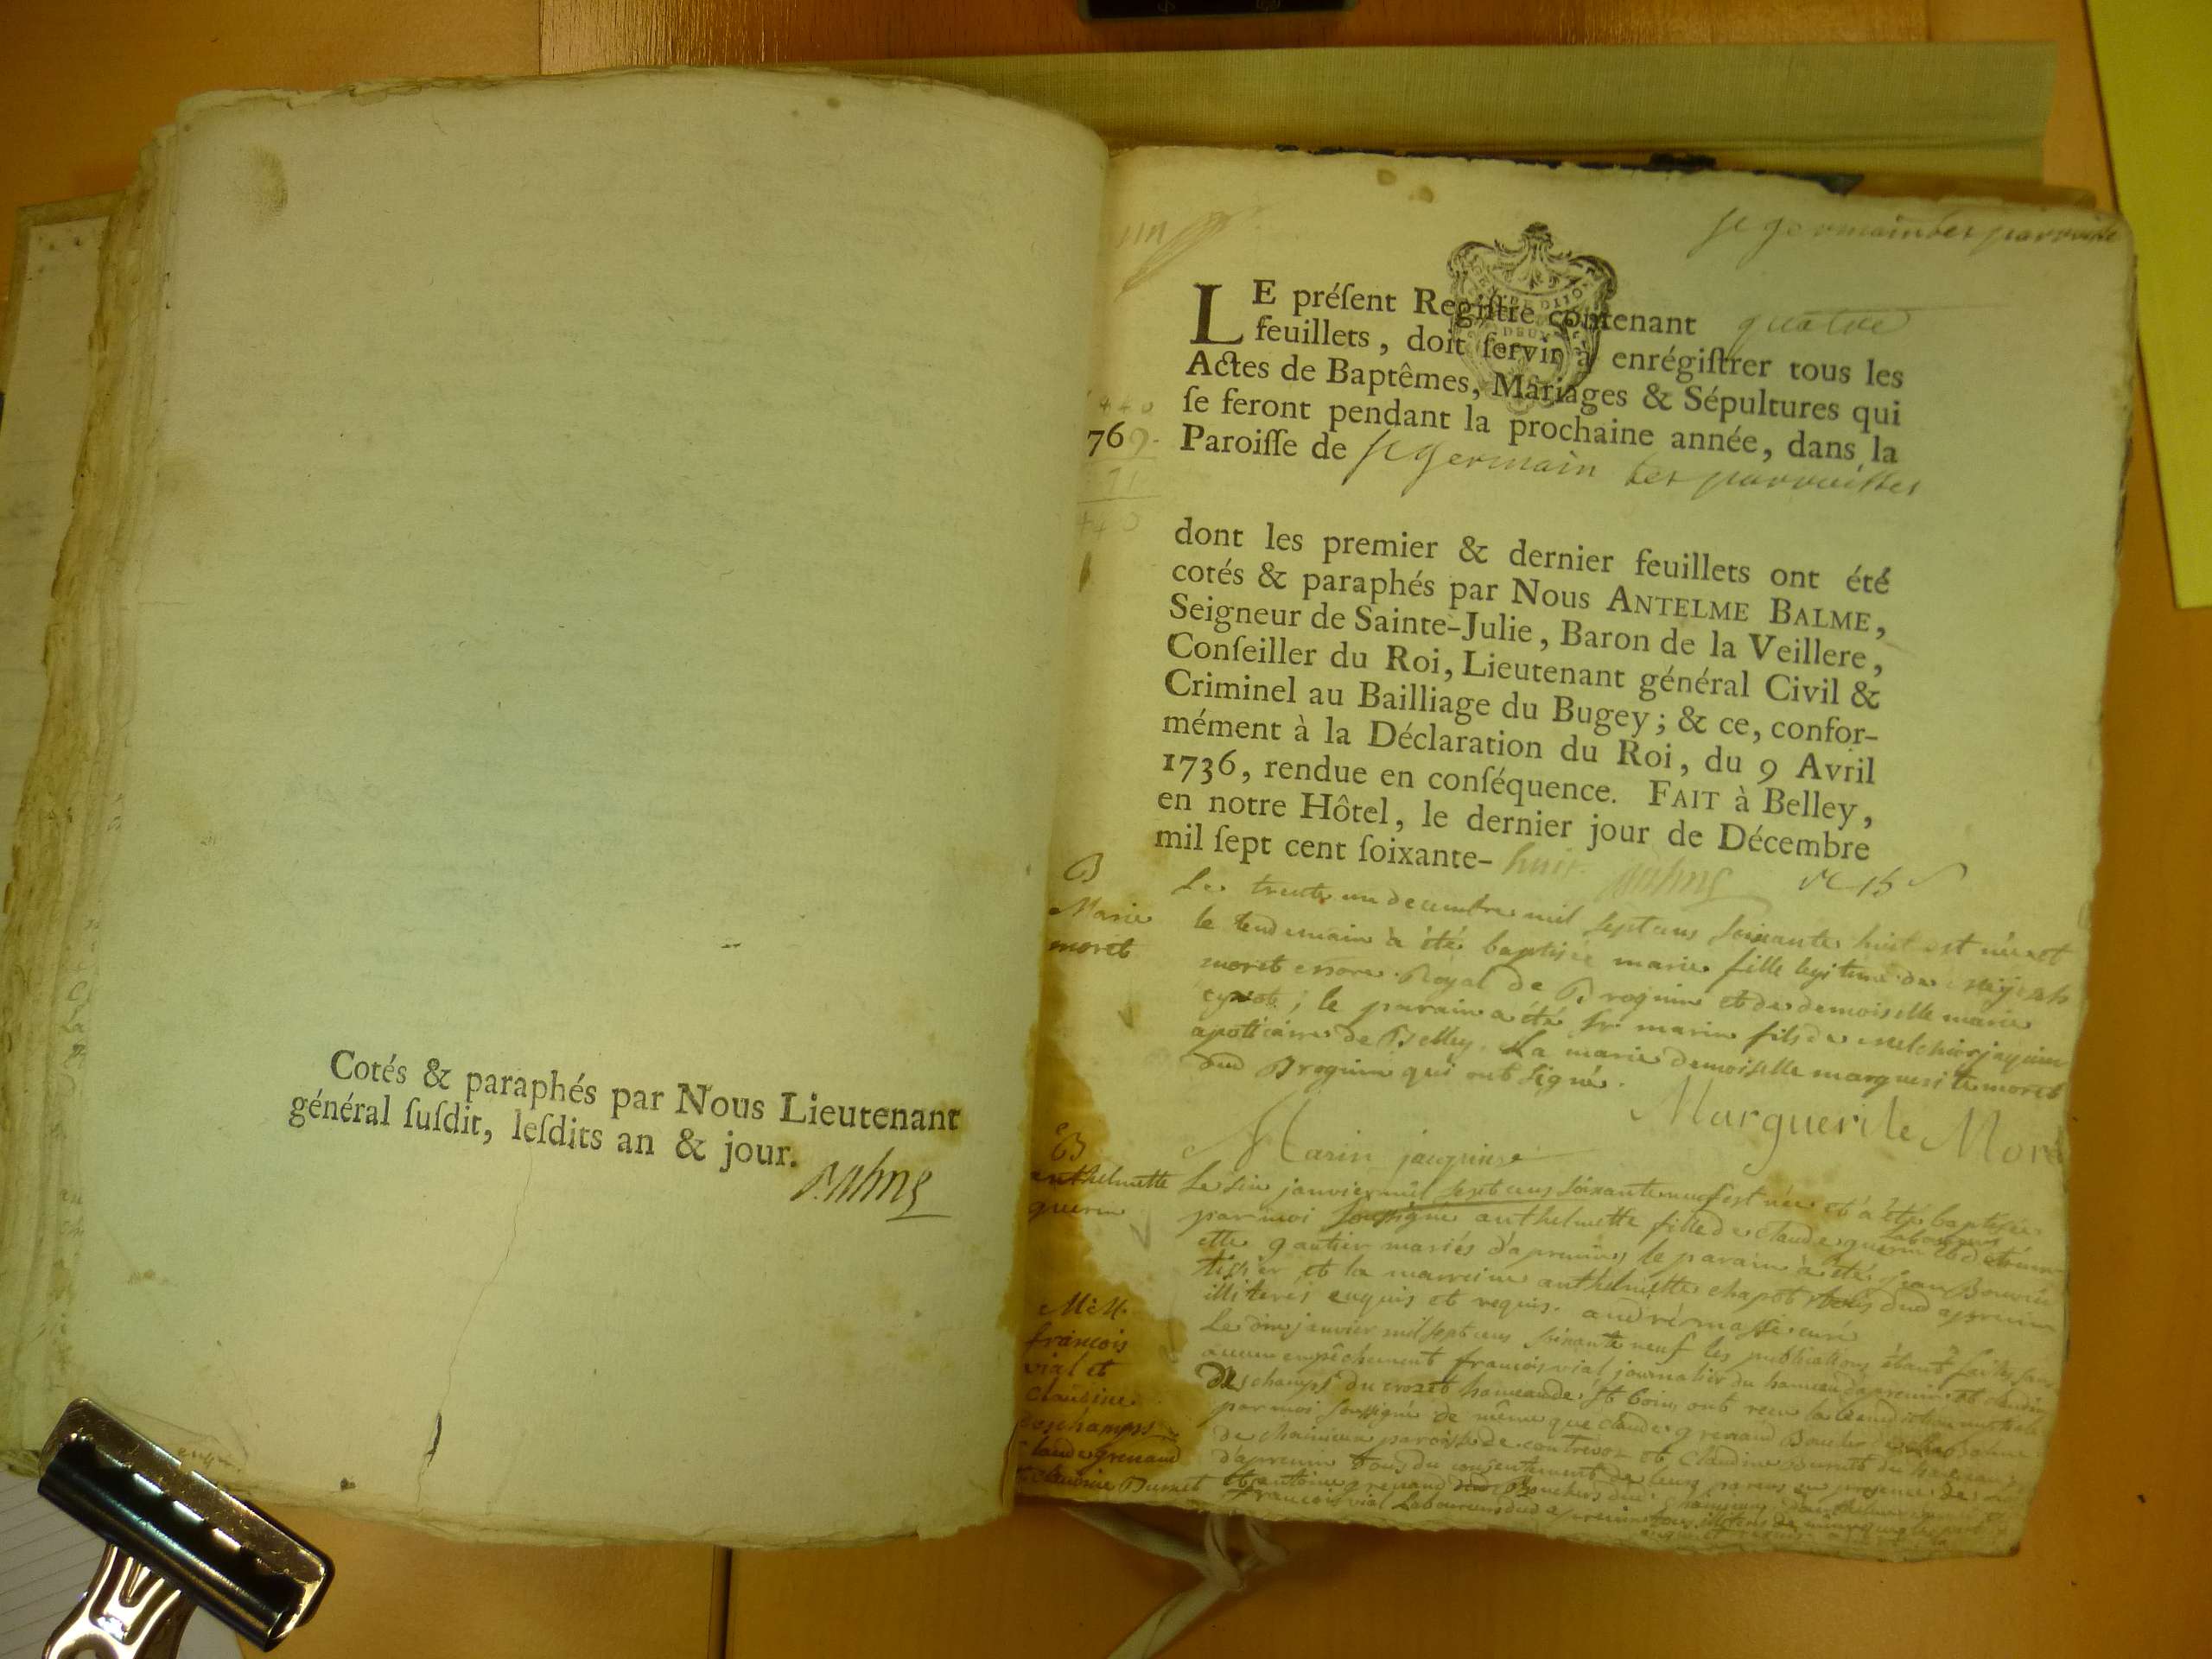 Cotés & paraphés par Nous Lieutenant
général ſuſdit, leſdits an & jour.
st germain les parroisse
LE préſent Regiſtre contenant quatre
feuillets, doit ſervir à enrégiſtrer tous les
Actes de Baptêmes, Mariages & Sépultures qui
ſe feront pendant la prochaine année, dans la
769.
Paroiſſe de st germain les parroisses
dont les premier & dernier feuillets ont été
cotés & paraphés par Nous ANTELME BALME,
Seigneur de Sainte-Julie, Baron de la Veillere,
Conſeiller du Roi, Lieutenant général Civil &
Criminel au Bailliage du Bugey; & ce, confor-
mément à la Déclaration du Roi, du 9 Avril
1736, rendue en conſéquence. FAIT à Belley,
en notre Hôtel, le dernier jour de Décembre
mil ſept cent ſoixante- huit.
B
Marie
moret
Le trente un decembre mil sept cens soixante huit est née et
le lendemain a été baptisée marie fille legitime de
moret Royal de Brognin et de demoiselle marie
; le parain a été sr. marin fils de melchior jaquin
apoticaire de Belley. La marie demoiselle marguerite moret
dud Brognin qui ont signé.
Marguerite Moret
Marin jaquin
B
anthelmette
guerin
Le six janvier mil sept cens soixante neuf est née et a été baptisée
par moi soussigné anthelmette fille de claude guerin laboureur et d
ette gautier mariés d'apremin le parain a été jean
tissier et la marreine anthelmette chapot tous dud apremin
illiterés enquis et requis. andré masse curé
M et M.
francois
vial et
claudine
deschamps
claude grenand
et claudine Burnet
Le dix janvier mil sept cens soixante neuf les publications étant faites sans
aucun empêchement francois vial journalier du hameau d'apremin et claudine
Deschamps du crozet hameau de st bois ont reçu la benediction nuptiale
par moi soussigné de même que claude grenand
de paroisse de contrevoz et claudine Burnet du hameau
d'apremin tous du consentement de leurs parens en presence de
et antoine grenand
francois vial laboureurs dud apremin